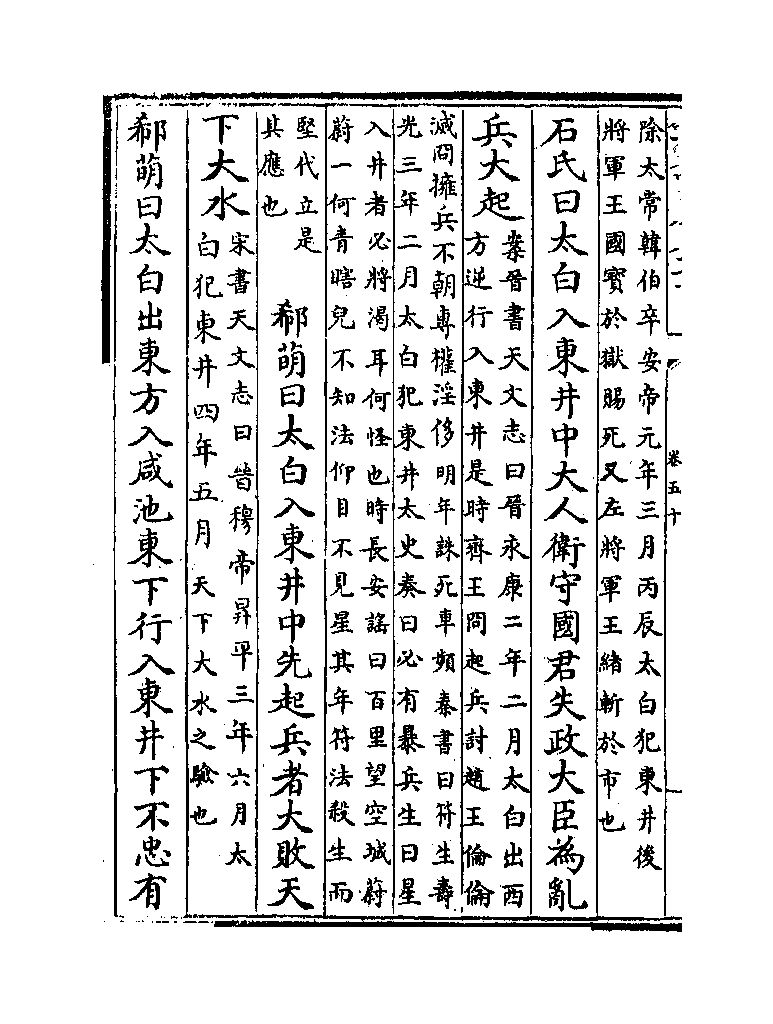 除太常韓伯卒安帝元年三月丙辰太白犯東井後
將軍王國寳於獄賜死又左將軍王緒斬於市也
石氏曰太白入東井中大人衛守國君失政大臣為亂
兵大起
案晉書天文志曰晉永康二年二月太白出西
方逆行入東井是時齊王冏起兵討趙王倫倫
滅冏擁兵不朝專權淫侈明年誅死車頻秦書曰符生壽
光三年二月太白犯東井太史奏曰必有暴兵生曰星
入井者必將渴耳何怪也時長安謡曰百里望空城蔚
蔚一何青瞎兒不知法仰目不見星其年符法殺生而
堅代立是
其應也
郗萌曰太白入東井中先起兵者大敗天
下大水
宋書天文志曰晉穆帝昇平三年六月太
白犯東井四年五月天下大水之驗也
郗萌曰太白出東方入咸池東下行入東井下不忠有
卷五十